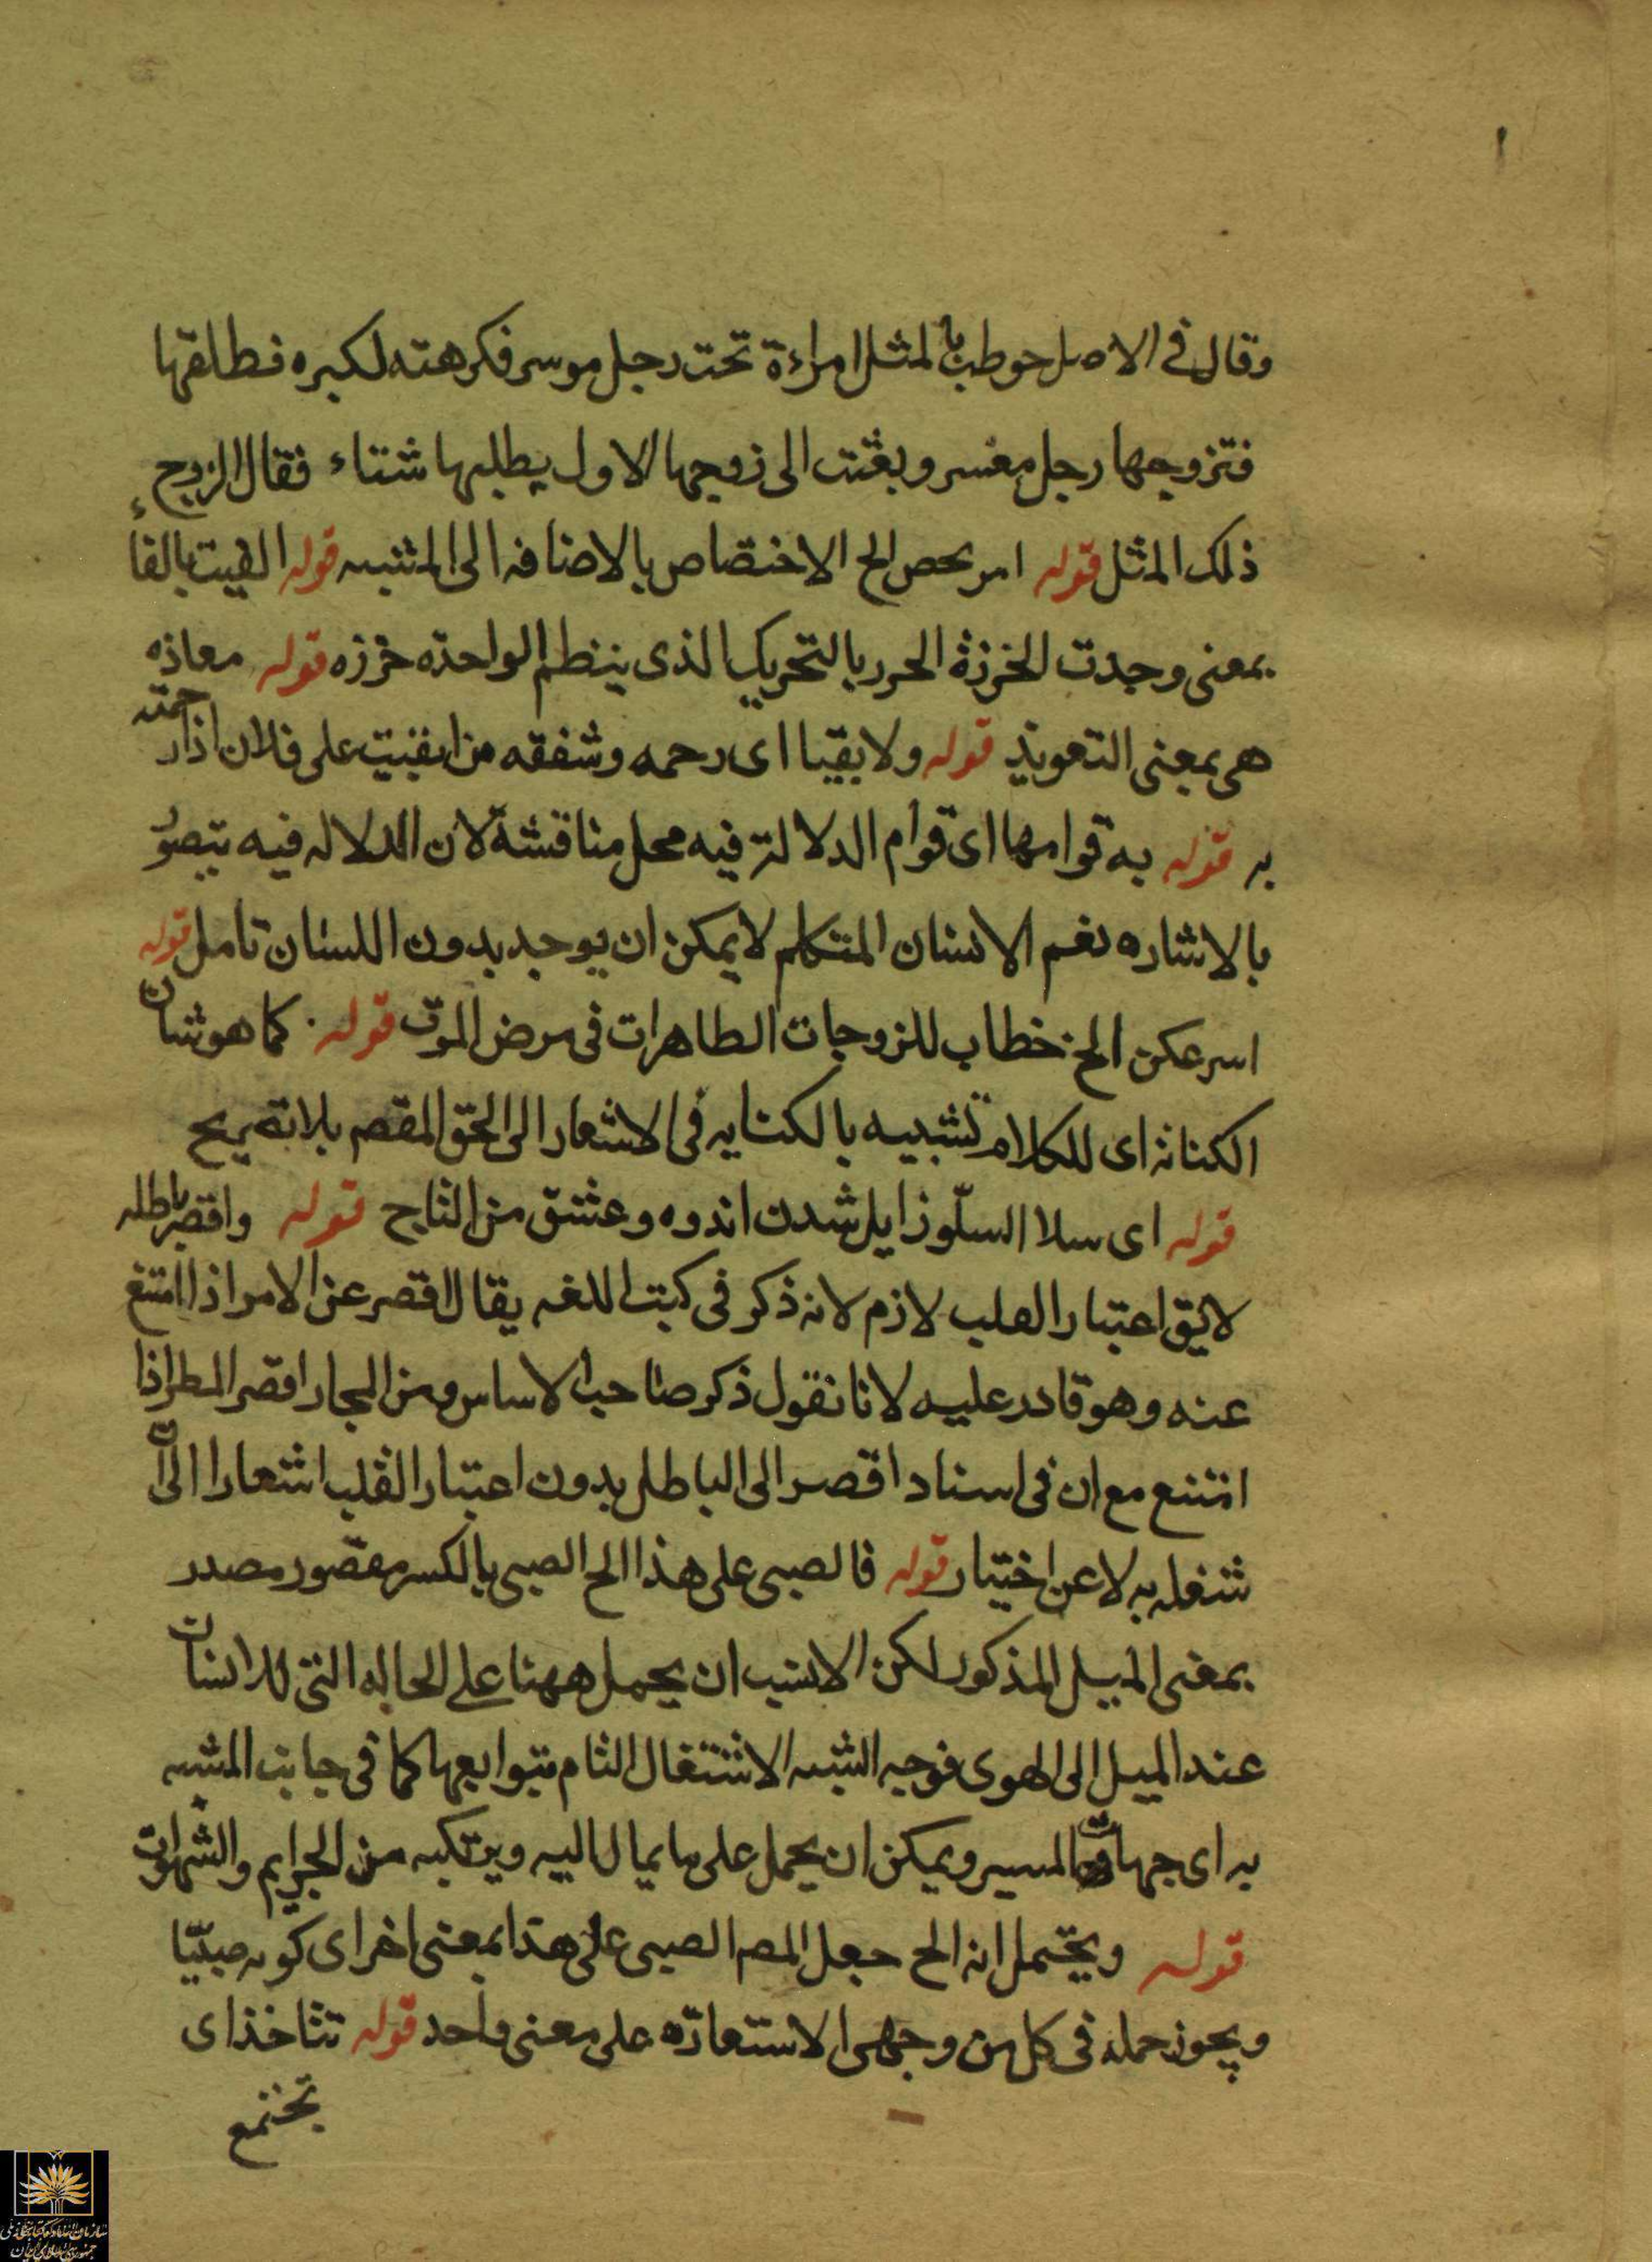 وقال في الاصل خوطب بالمثل امراءة تحت رجل موسر فكرهته لكبره فطلقها
فتزوجها رجل معسر وبعثت الى زوجها الاول يطلبها شتاء فقال الزوج
ذلك المثل قوله امر يخص الخ الاختصاص بالاضافه الى المشبه قوله الفيت بالفاء
بمعنى وجدت الخرزة الحرر بالتحريك الذى ينظم الواحدة خرزه قوله معاذه
هى بمعنى التعويذ قوله ولا بقيا اى رحمه وشفقه من ابقيت على فلان اذا رحمته
به قوله به قوامها اى قوام الدلالة فيه محل مناقشة لان الدلاله فيه يتصور
بالاشاره نعم الانسان المتكلم لا يمكن ان يوجد بدون اللسان تامل قوله
اسرعكن الخ خطاب للزوجات الطاهرات فى مرض الموت قوله كما هو شان
الكنايه اى للكلام تشبيه بالكنايه فى الاشعار الى الحق المقصم بلا تصريح
قوله اى سلا السلّو زايل شدن اندوه وعشق من التاج قوله واقصر باطله
لا يق اعتبار القلب لازم لانه ذكر فى كتب اللغه يقال اقصر عن الامر اذا امتنع
عنه وهو قادر عليه لانا نقول ذكر صاحب الاساس ومن المجاز اقصر المطر اذا
امتنع مع ان فى اسناد اقصر الى الباطل بدون اعتبار القلب اشعارا الى ان
شغله به لا عن اختيار قوله فالصبى على هذا الخ الصبى بالكسر مقصور مصدر
بمعنى الميل المذكور لكن الانسب ان يحمل ههنا على الحاله التى للانسان
عند الميل الى الهوى فوجه الشبه الاشتغال التام بتوابعها كما فى جانب المشبه
به اى جهات المسير ويمكن ان يحمل على ما يمال اليه ويرتكبه من الجرايم والشهوات
قوله ويحتمل انه الخ جعل المصم الصبى على هذا بمعنى اخر اى كونه صبيّا
ويجوز حمله فى كل من وجهى الاستعارة على معنى واحد قوله تتاخذ اى
تجتمع